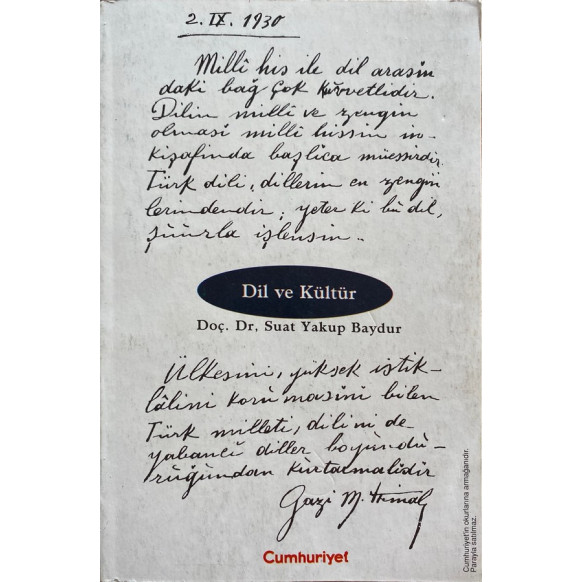 2. IX. 1930
Millî his ile dil arasın
daki bağ çok kuvvetlidir.
Dilin millî ve zengin
olması millî hissin in-
kişafında başlıca müessirdir.
Türk dili, dillerin en zengin
lerindendir; yeter ki bu dil,
şuurla işlensin..
Dil ve Kültür
Doç. Dr. Suat Yakup Baydur
Ülkesini, yüksek istik-
lâlini korumasını bilen
Türk milleti, dilini de
yabancı diller boyundu-
ruğundan kurtarmalıdır
Gazi M. Kemal
Cumhuriyet
Cumhuriyet'in okurlarına armağanıdır.
Parayla satılmaz.